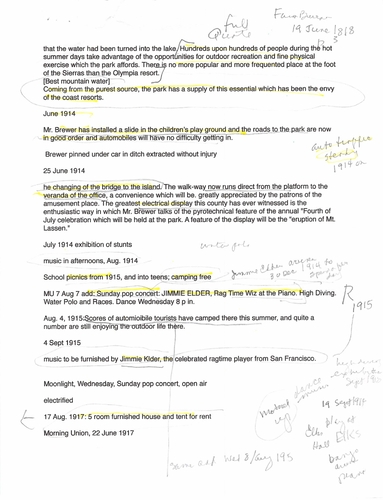 full
Quote
19 June 1818
that the water had been turned into the lake. Hundreds upon hundreds of people during the hot
summer days take advantage of the opportunities for outdoor recreation and fine physical
exercise which the park affords. There is no more popular and more frequented place at the foot
of the Sierras than the Olympia resort.
[Best mountain water]
Coming from the purest source, the park has a supply of this essential which has been the envy
of the coast resorts.
June 1914
Mr. Brewer has installed a slide in the children's play ground and the roads to the park are now
in good order and automobiles will have no difficulty getting in.
auto traffic
1914 on
Brewer pinned under car in ditch extracted without injury
25 June 1914
he changing of the bridge to the island. The walk-way now runs direct from the platform to the
veranda of the office, a convenience which will be. greatly appreciated by the patrons of the
amusement place. The greatest electrical display this county has ever witnessed is the
enthusiastic way in which Mr. Brewer talks of the pyrotechnical feature of the annual "Fourth of
July celebration which will be held at the park. A feature of the display will be the "eruption of Mt.
Lassen."
July 1914 exhibition of stunts
water polo
music in afternoons, Aug. 1914
School picnics from 1915, and into teens; camping free
MU 7 Aug 7 add: Sunday pop concert: JIMMIE ELDER, Rag Time Wiz at the Piano. High Diving.
Water Polo and Races. Dance Wednesday 8 p in.
1915
Aug. 4, 1915:Scores of automioibile tourists have camped there this summer, and quite a
number are still enjoying the outdoor life there.
4 Sept 1915
music to be furnished by Jimmie Klder, the celebrated ragtime player from San Francisco.
Moonlight, Wednesday, Sunday pop concert, open air
electrified
17 Aug. 1917: 5 room furnished house and tent for rent
Hall
Morning Union, 22 June 1917